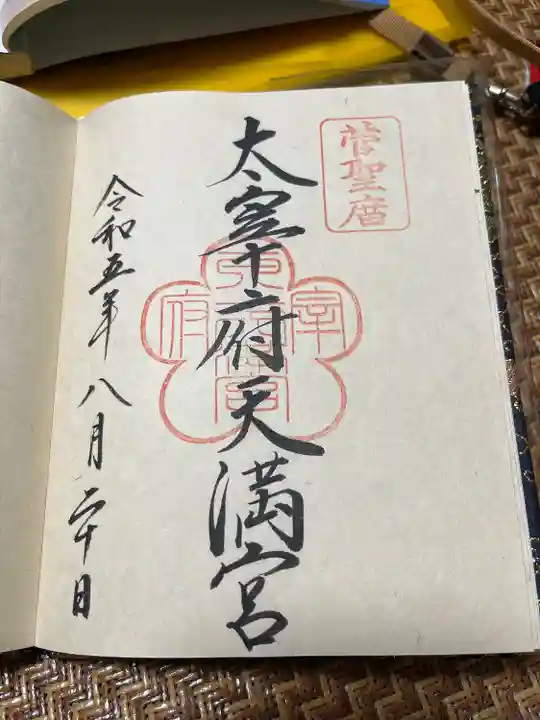 菅聖廟
太宰府天満宮
令和五年八月二十日